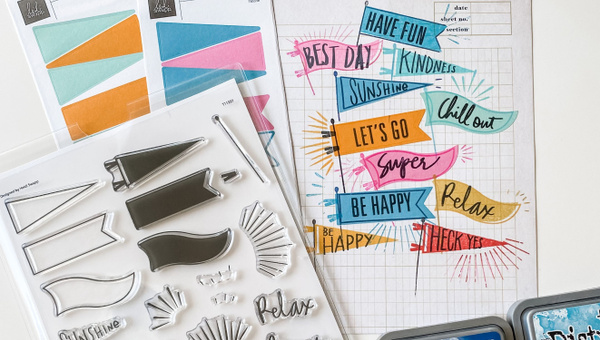 date
sheet no.
section
HAVE FUN
BEST DAY
KINDNESS
SUNSHINE
Chill out
LET'S GO
Super
BE HAPPY
Relax
BE
HAPPY
HECK YES
SUNSHINE
Relax